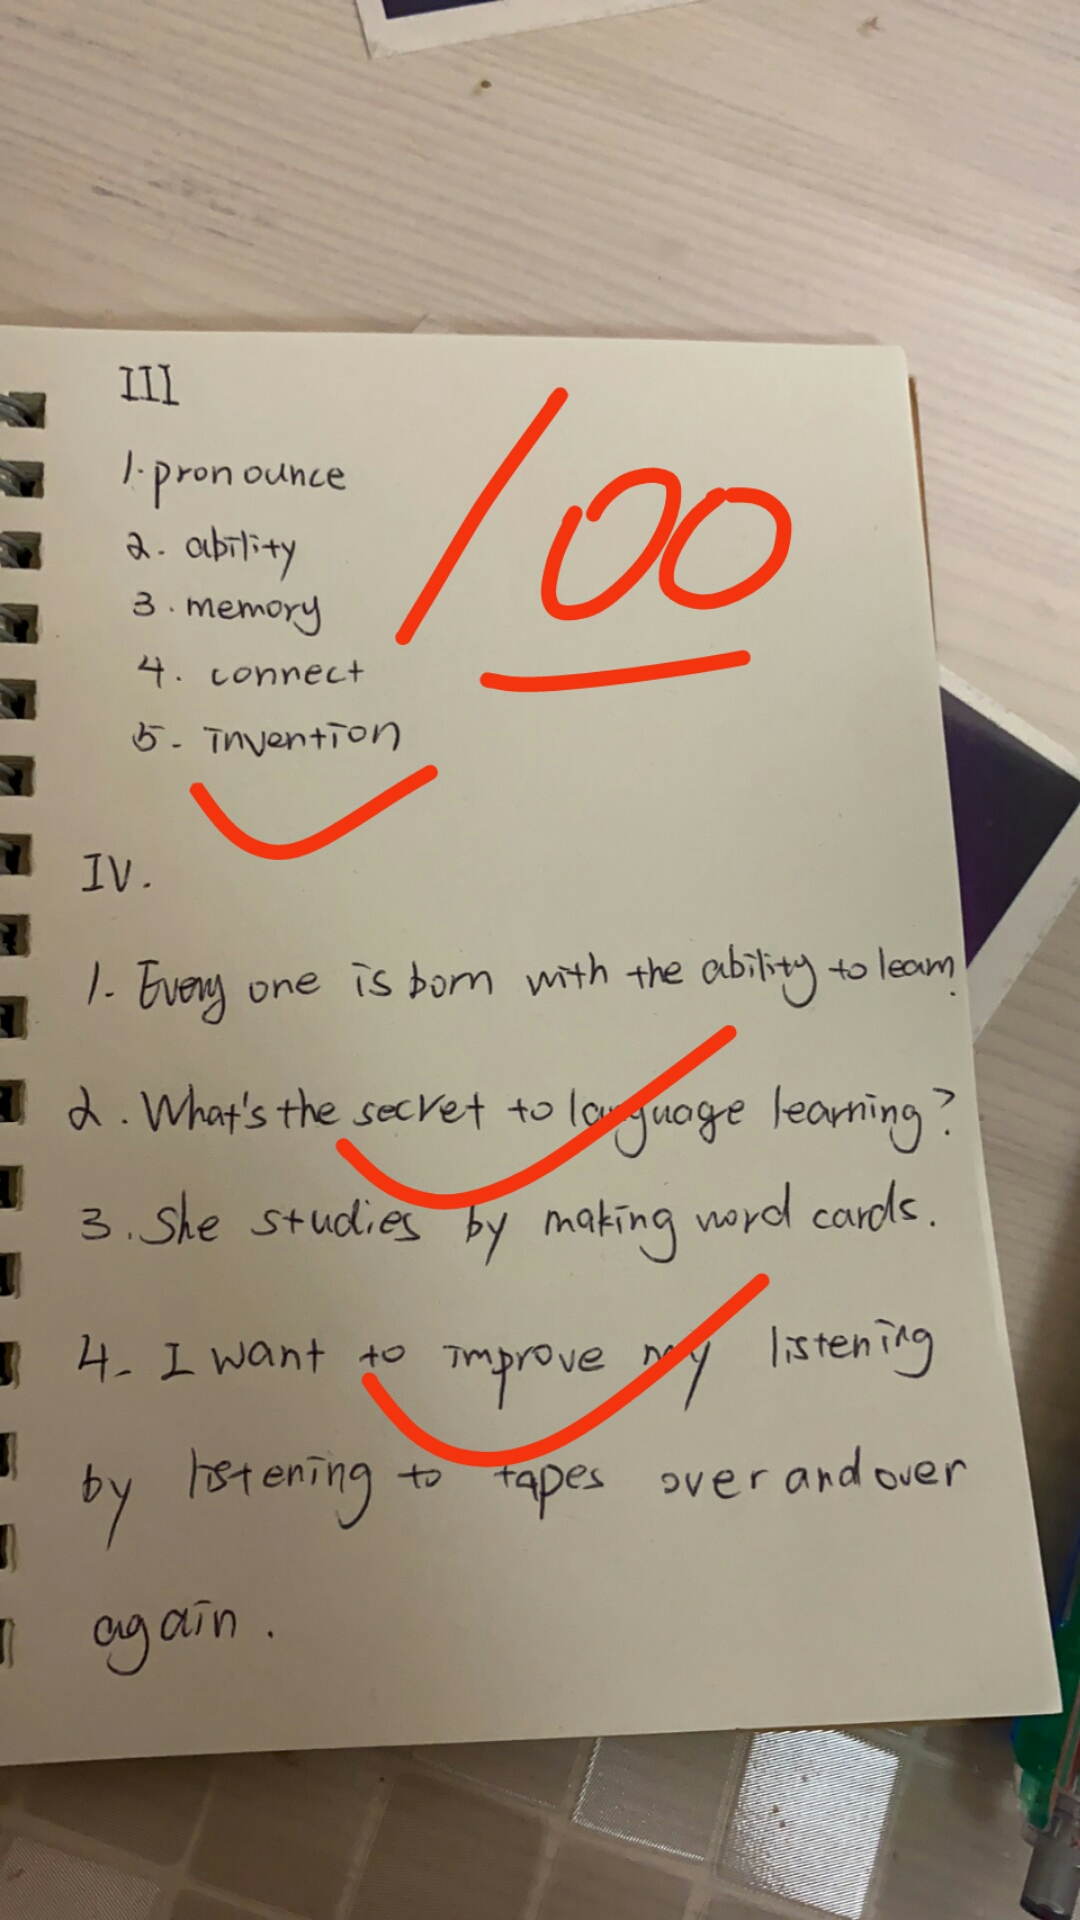 III
1. pronounce
2. ability
3. memory
4. connect
5. invention
100
IV.
1. Every one is born with the ability to learn.
2. What's the secret to language learning?
3. She studies by making word cards.
4. I want to improve my listening
by listening to tapes over and over
again.